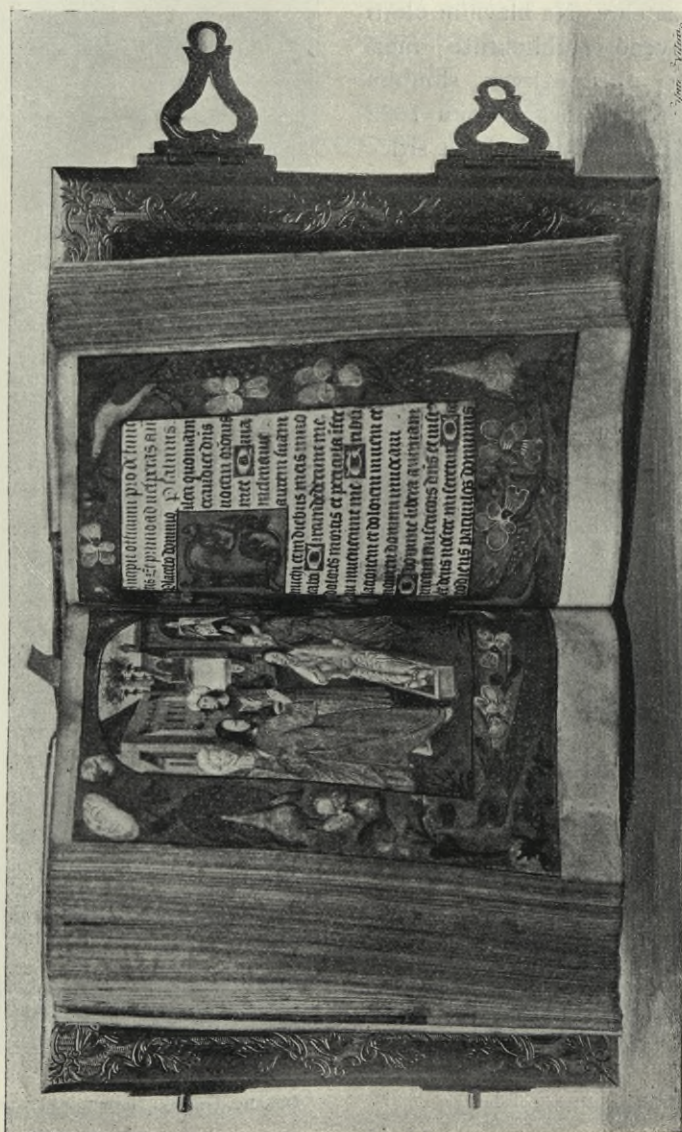 Incipit officium pro defunc
tis Et primo ad uesperas an
Placebo domino. Psalmus.
Dilexi quoniam
exaudiet dns
uocem oronis
mee Quia
inclinauit
aurem suam
michi et in diebus meis inuo
cabo Circumdederunt me
dolores mortis et pericula infer
ni inuenerunt me Tribu
lacionem et dolorem inueni et
nomen domini inuocaui.
O domine libera animam
meam misericors dns et iust
et deus noster miseretur Cus
todiens paruulos dominus